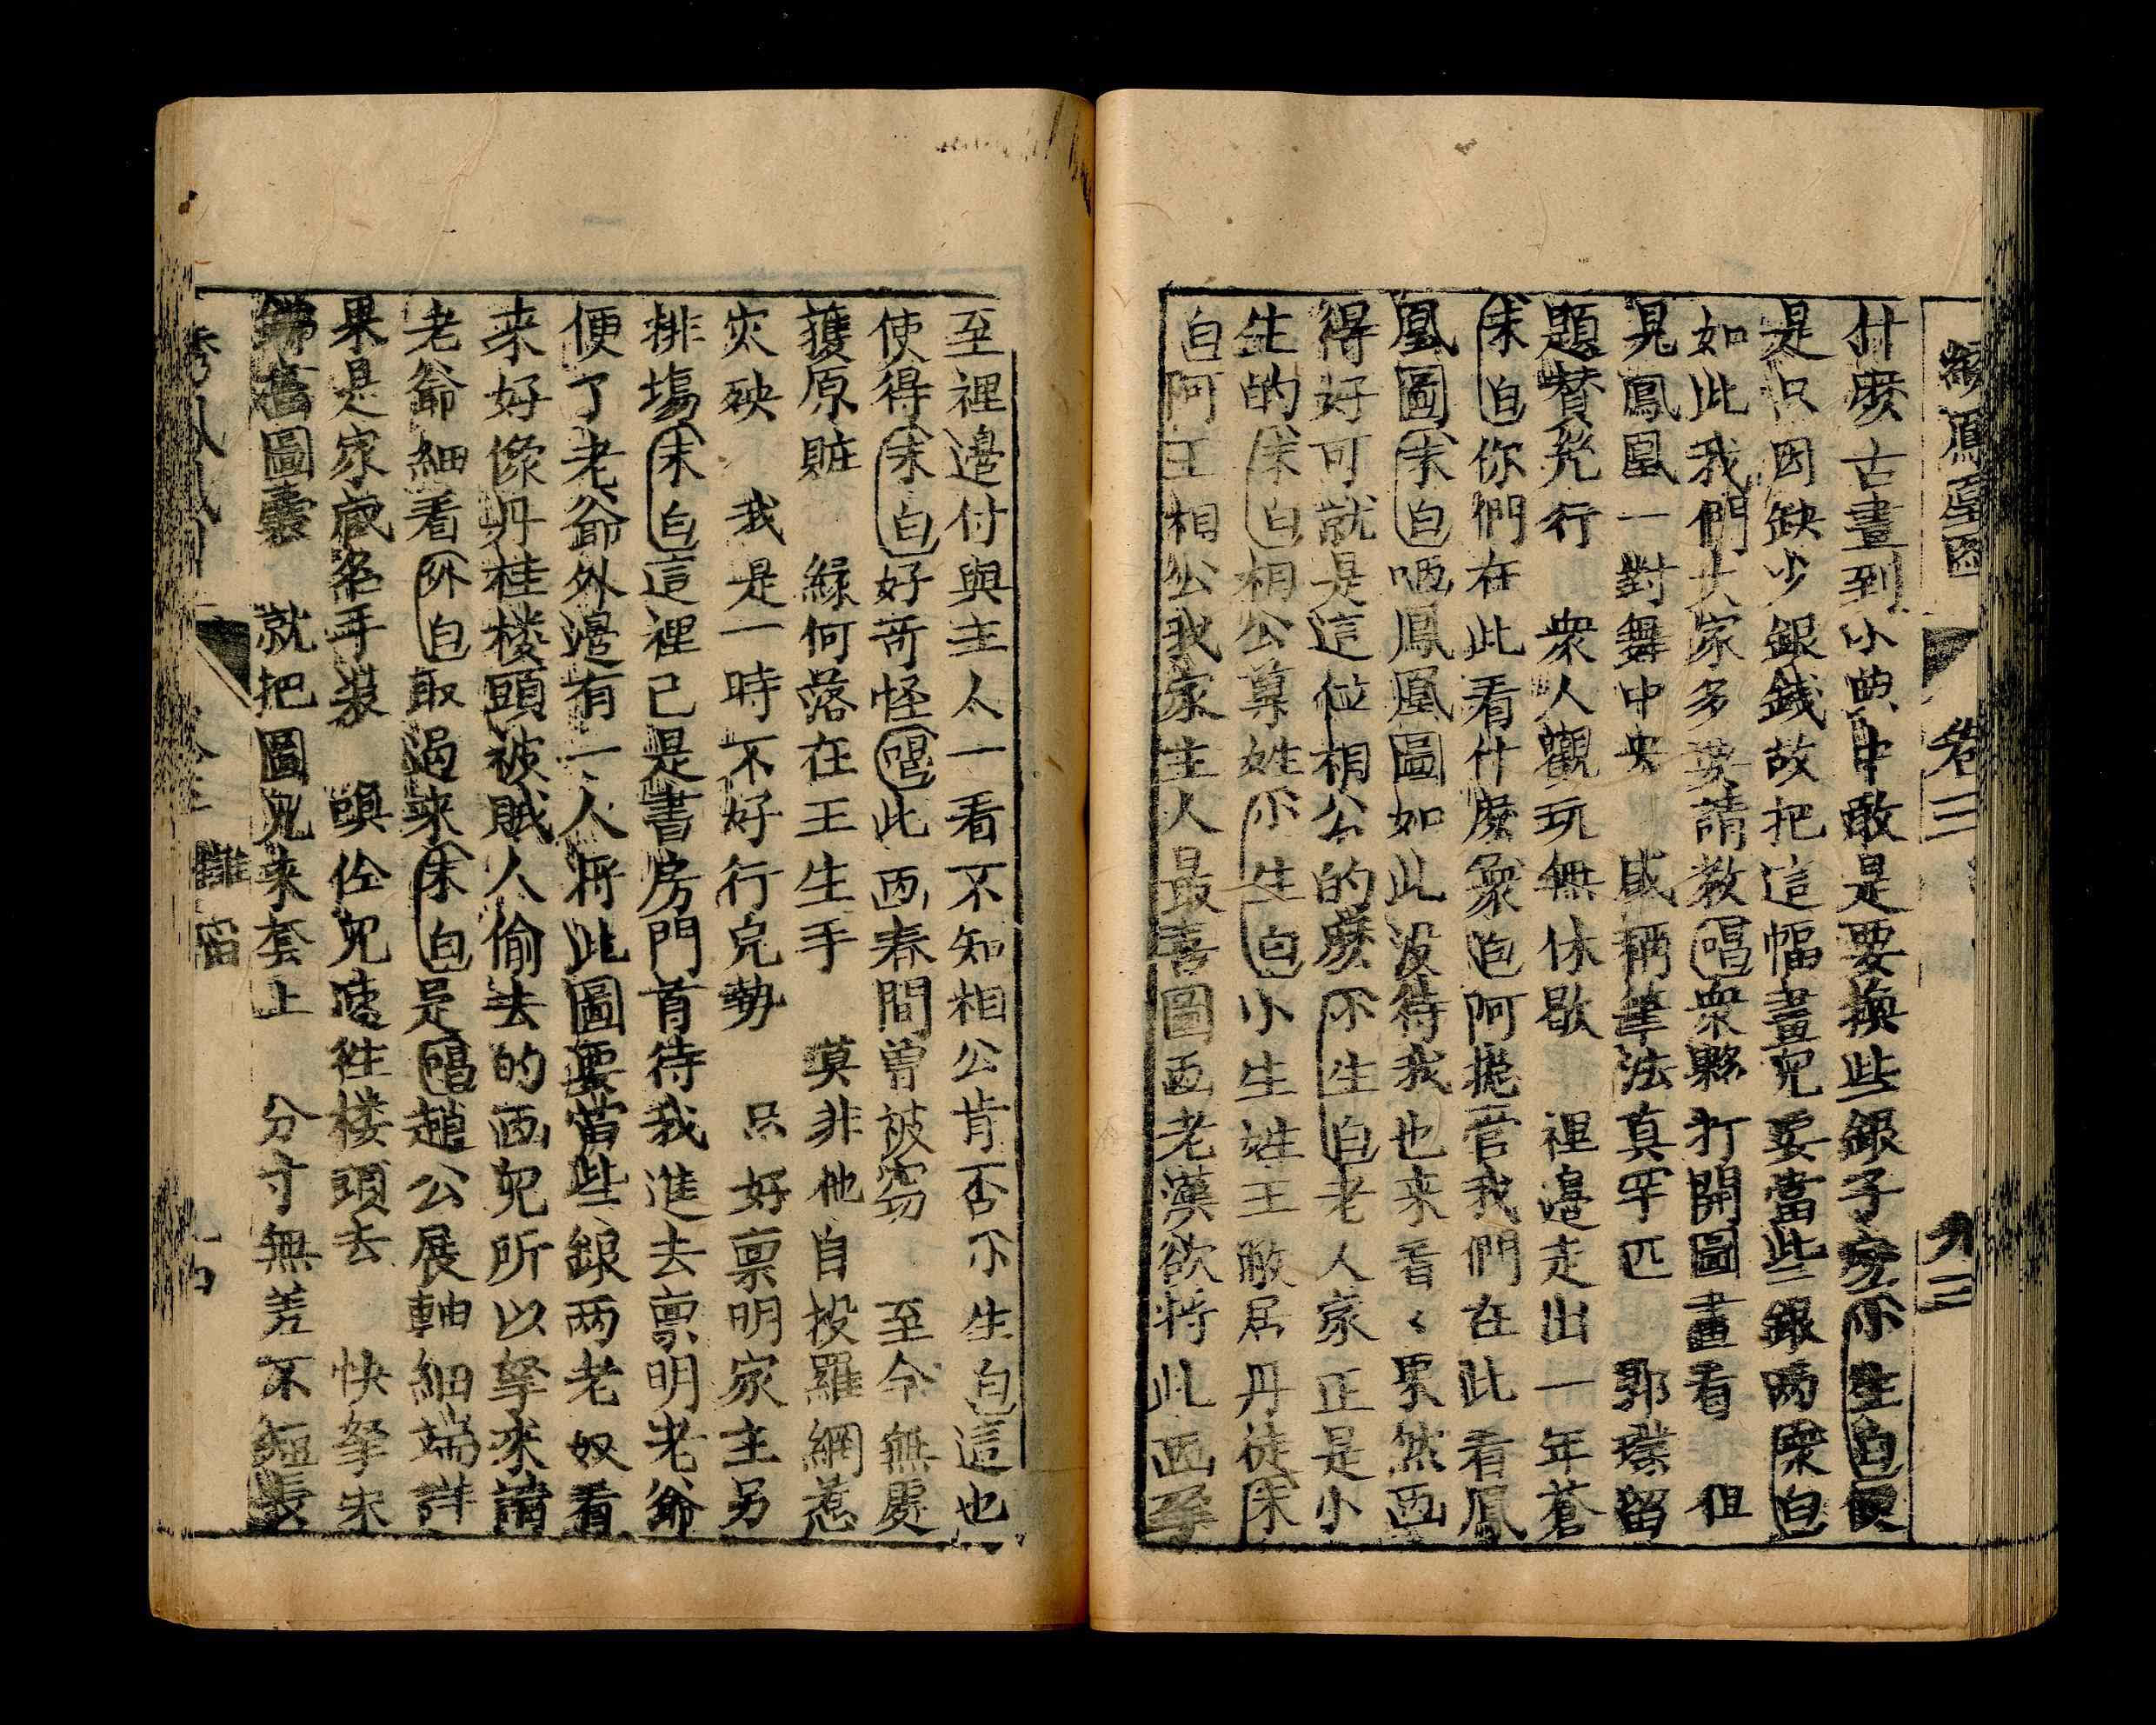 鳳凰圖 卷三
什麽古畫到小典中敢是要換些銀子麽小生白便
是只因缺少銀錢故把這幅畫兒要當些銀两衆白
如此我們大家多要請教唱衆夥打開圖畫看 但
見鳳凰一對舞中央 咸稱筆法真罕匹 郭璞留
題賛兇行 衆人觀玩無休歇 裡邉走出一年蒼
末白你們在此看什麽衆白阿搃管我們在此看鳳
凰圖末白哂鳳凰圖如此没待我也来看〻果然画
得好可就是這位相公的麽小生白老人家正是小
生的末白相公尊姓小生白小生姓王敝居丹徒末
白阿王相公我家主人最喜圖画老漢欲将此画拏
至裡邉付與主人一看不知相公肯否小生白這也
使得末白好奇怪唱此画春間曽被窃 至今無處
獲原賍 緣何落在王生手 莫非他自投羅網惹
灾殃 我是一時不好行兇勢 只好禀明家主另
排塲末白這裡已是書房門首待我進去禀明老爺
便了老爺外邉有一人将此圖要當些銀两老奴看
来好像丹桂楼頭被賊人偷去的画兒所以拏来請
老爺細看外白取過来末白是唱趙公展軸細端詳
果是家藏名手裝 喚佺兒速徃楼頭去 快拏宋
錦舊圖囊 就把圖兒来套上 分寸無差不短長